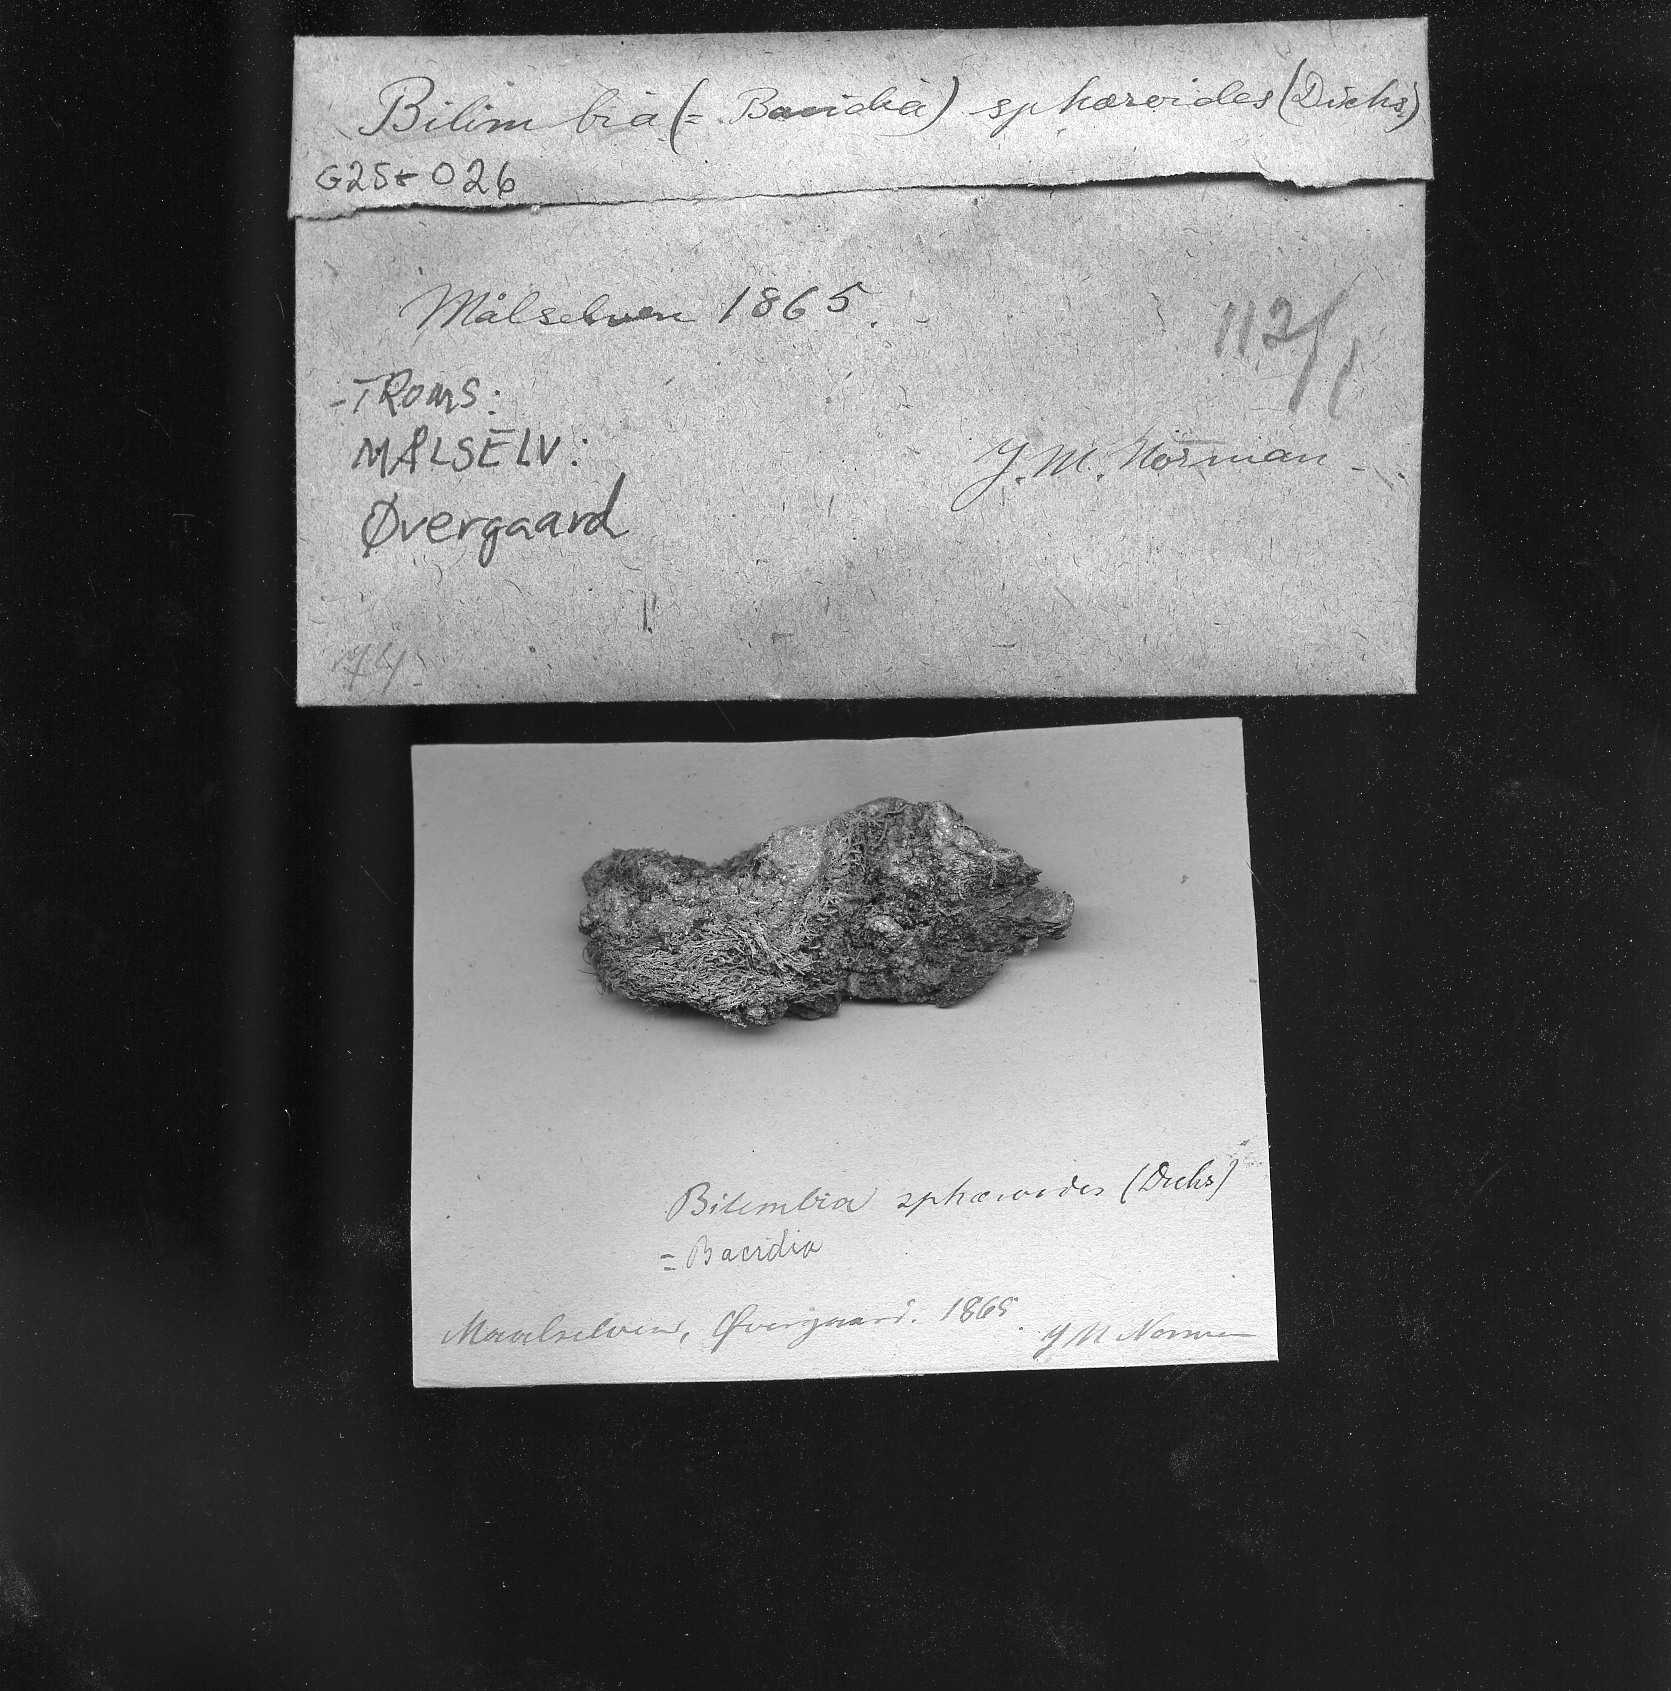 Bilimbia (= Bacidia) sphæroides (Dicks)
G25+026
Målselven 1865.
112/1
-TROMS:
MÅLSELV:
J. M. Norman
Øvergaard
Bilimbia sphæroides (Dicks)
= Bacidia
Maalselven, Øvergaard. 1865.
J M Norman